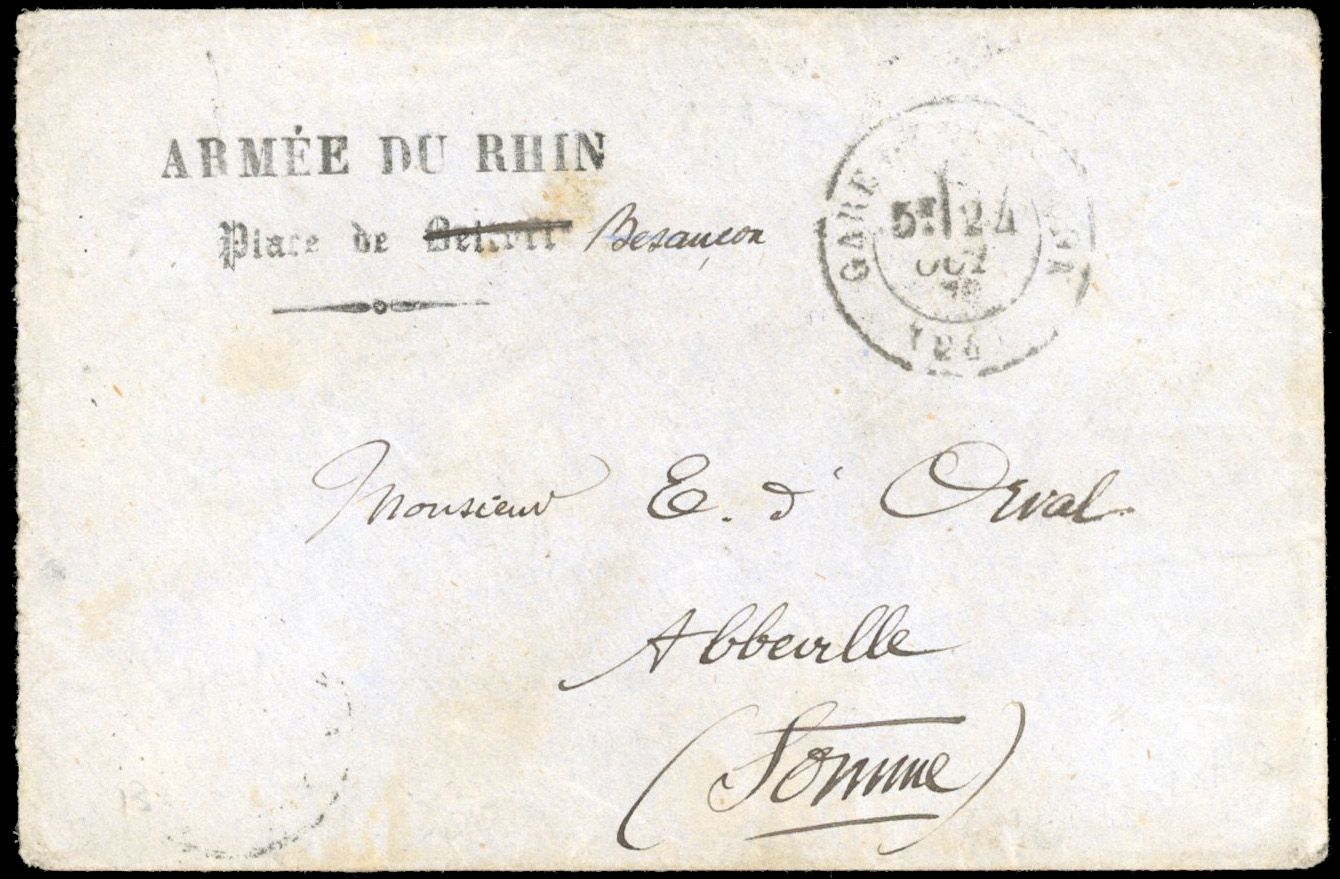 ARMÉE DU RHIN
Place de Besançon
GARE
5E 24
OCT
Monsieur E. d'Orval
Abbeville
(Somme)